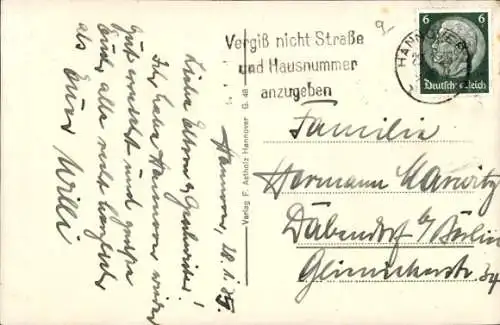 Hannover, 28.1.35.
Liebe Eltern u. Geschwister!
Ich habe Hannover wieder
gut erreicht und grüße
Euch alle recht herzlich
als Euer Willi
Verlag F. Astholz Hannover G. 48
Vergiß nicht Straße
und Hausnummer
anzugeben
HANNOVER
6 6
Deutsches Reich
Familie
Hermann
Dabendorf b/ Berlin